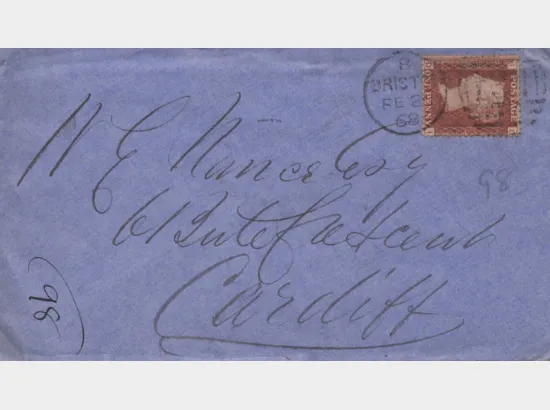 B
BRISTOL
FE 2
68
POSTAGE
ONE PENNY
W E Nance Esq
61 Bute Crescent
Cardiff
98
98